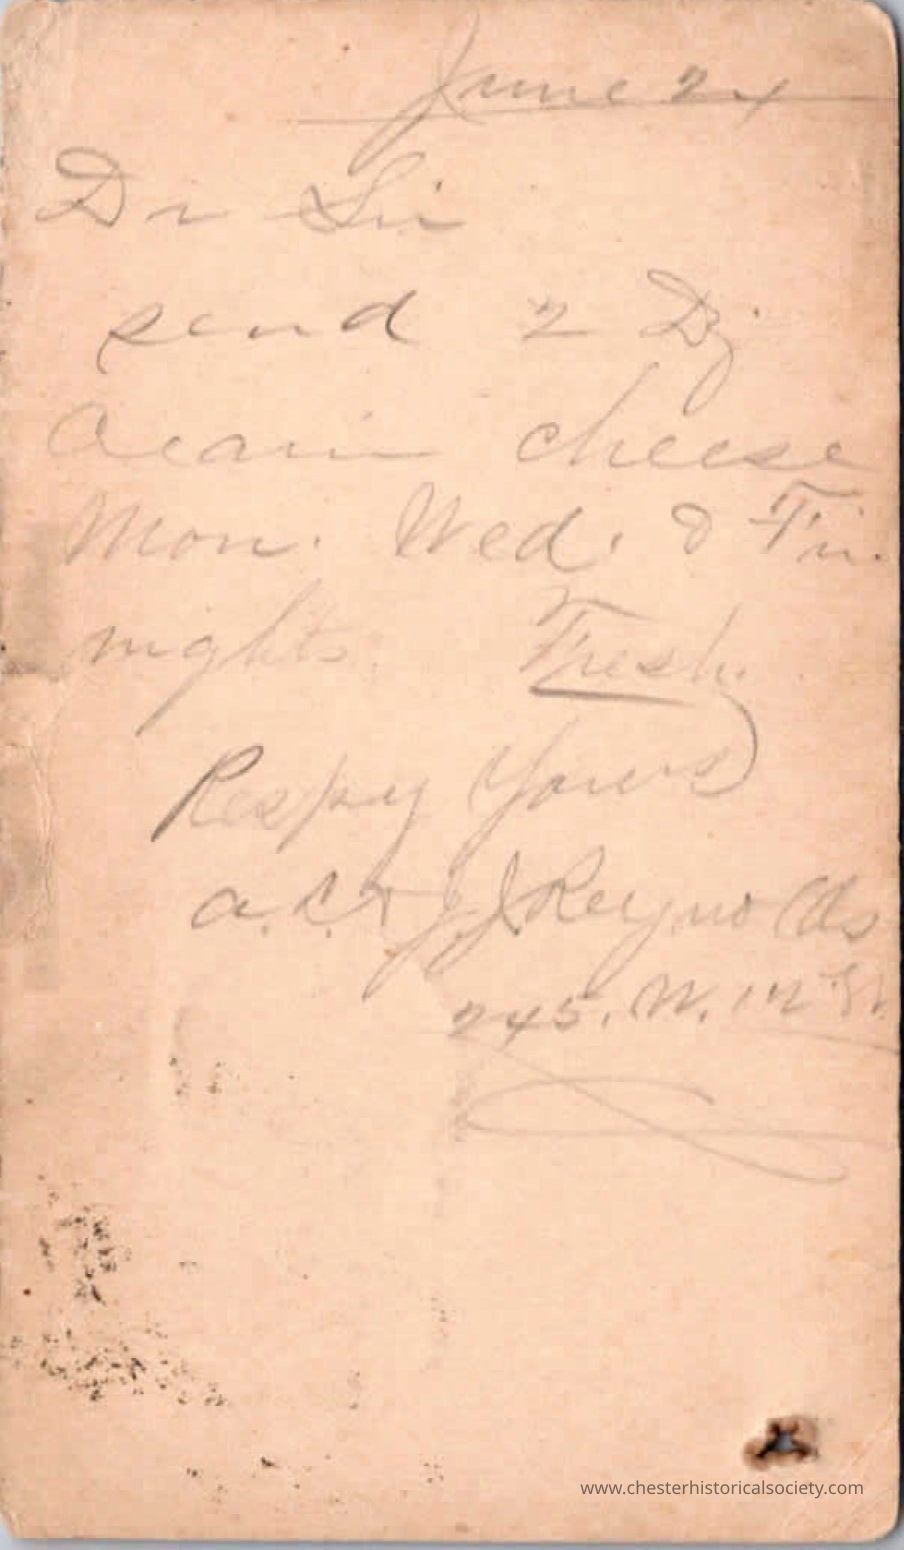 June 24
Dr Sir
send 2 Dz
cheese
Mon. Wed. & Fri.
nights. Fresh.
Respy Yours
J.J. Reynolds
245. W. 112 St.
www.chesterhistoricalsociety.com